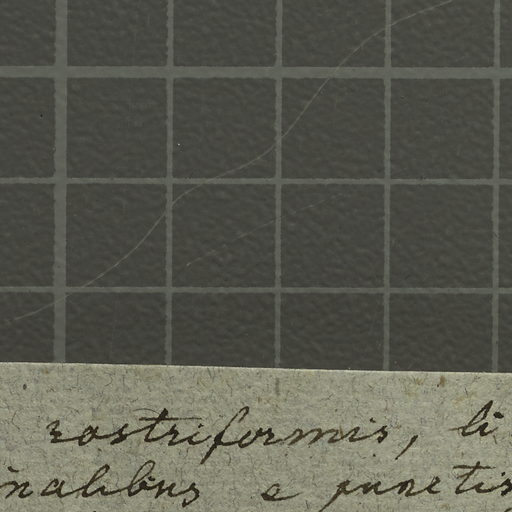 rostriformis, li
inalibus e punctis